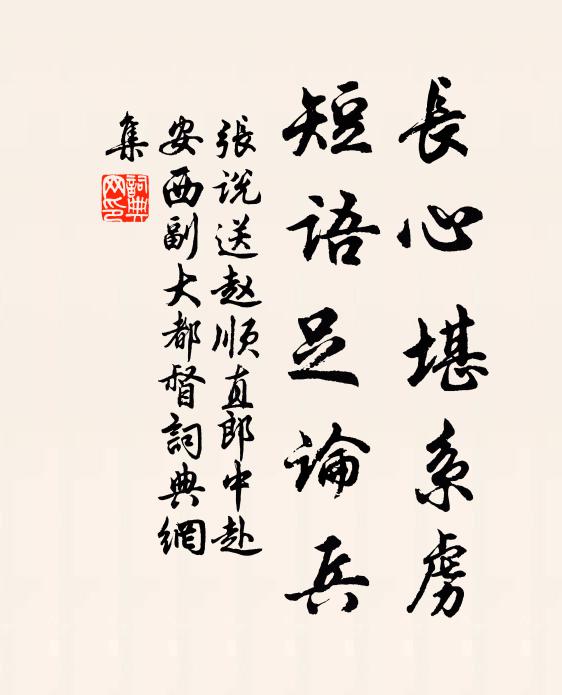 長心堪系虜
短語足論兵
張說送赵順直郎中赴
安西副大都督詞典網
集
詞典網印